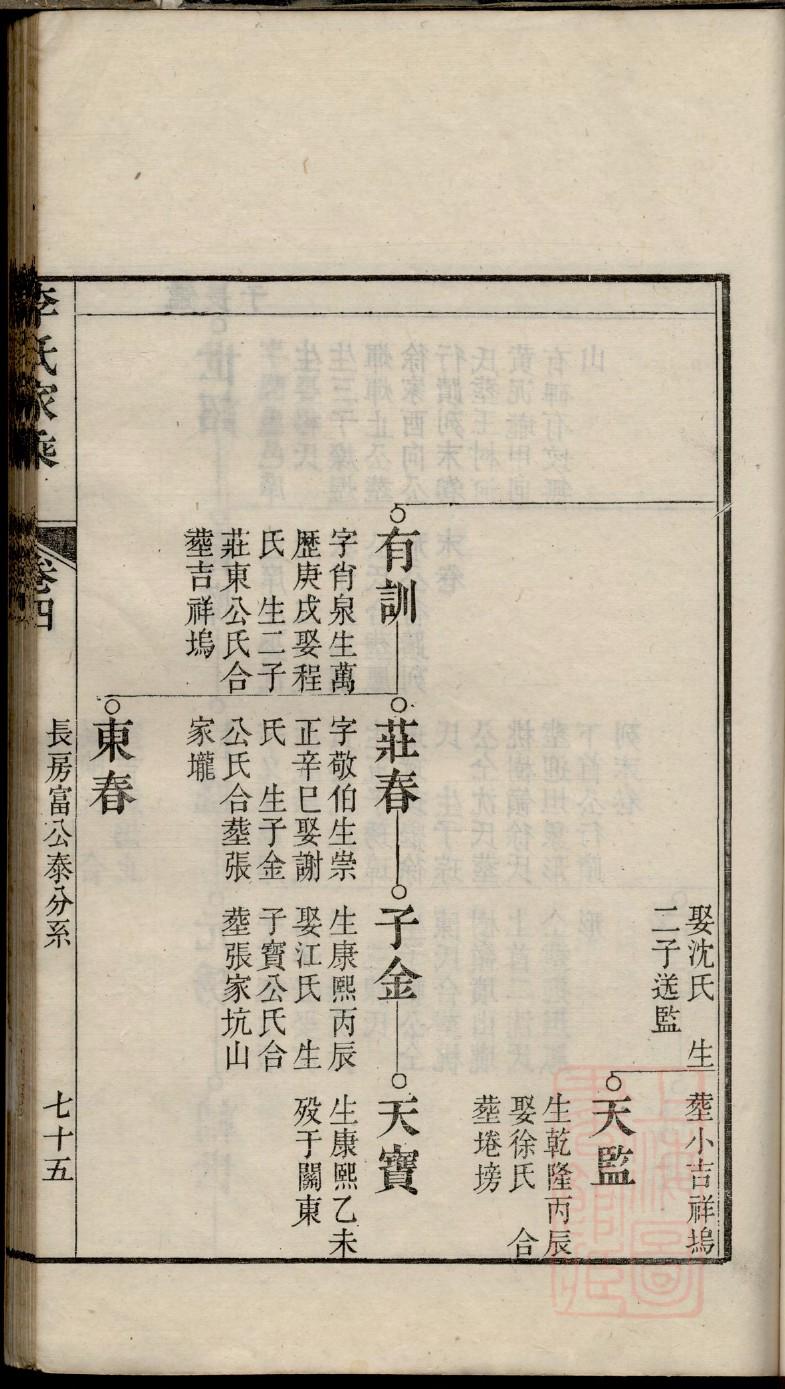 娶沈氏　生
二子送監
塟小吉祥塢
天監
生乾隆丙辰
娶徐氏　合
塟埢塝
有訓
字肖泉生萬
歷庚戌娶程
氏　生二子
莊東公氏合
塟吉祥塢
莊春
字敬伯生崇
正辛巳娶謝
氏　生子金
公氏合塟張
家壠
子金
生康熙丙辰
娶江氏　生
子寶公氏合
塟張家坑山
天寶
生康熙乙未
歿于關東
東春
李氏家乘
卷四
長房富公泰分系
七十五